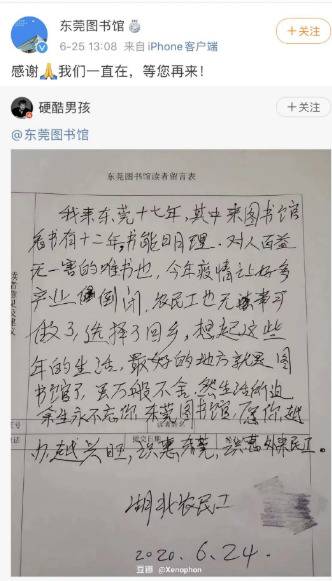 东莞图书馆
+关注
6-25 13:08 来自iPhone客户端
感谢🙏我们一直在，等您再来！
硬酷男孩
+关注
@东莞图书馆
东莞图书馆读者留言表
我来东莞十七年，其中来图书馆
看书有十二年，书能明理，对人百益
无一害的唯书也，今年疫情让好多
产业倒闭，农民工也无事可
做了，选择了回乡，想起这些
年的生活，最好的地方就是图
书馆了，虽万般不舍，然生活所迫，
余生永不忘你，东莞图书馆，愿你越
办越兴旺，识惠东莞，识惠外来民工。
湖北农民工
2020.6.24.
豆瓣 @Xenophon